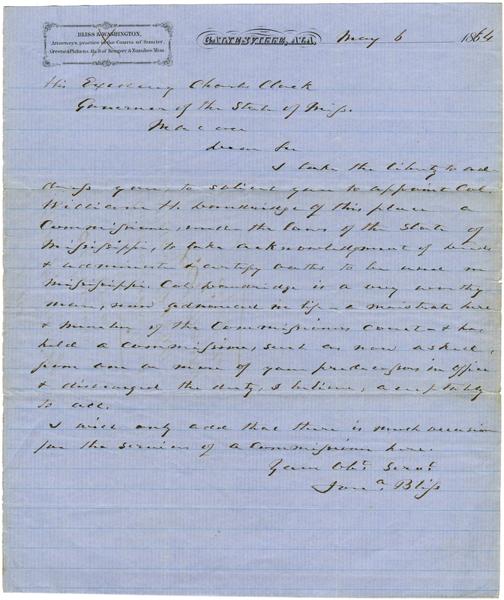 BLISS & WASHINGTON,
Attorneys, practice in the Courts of Sumter,
Greene & Pickens, Ala. & of Kemper & Noxubee Miss.
GAINESVILLE, ALA, May 6 1864
His Excellency Charles Clark
Governor of the State of Miss.
Macon
Dear Sir
I take the liberty to ad-
dress you, to solicit you to appoint Col
William H. of this place a
Commissioner, under the laws of the State of
Mississippi, to take acknowledgment of deeds
& administer & certify oaths to be used in
Mississippi. Col is a very worthy
man, now advanced in life - a magistrate here
& member of the Commissioners Court & has
held a Commission, such as now asked,
from one or more of your predecessors in office
& discharged the duty, I believe, acceptably
to all.
I will only add that there is much occasion
for the services of a Commissioner here
Your Obt. Servt.
Jona. Bliss